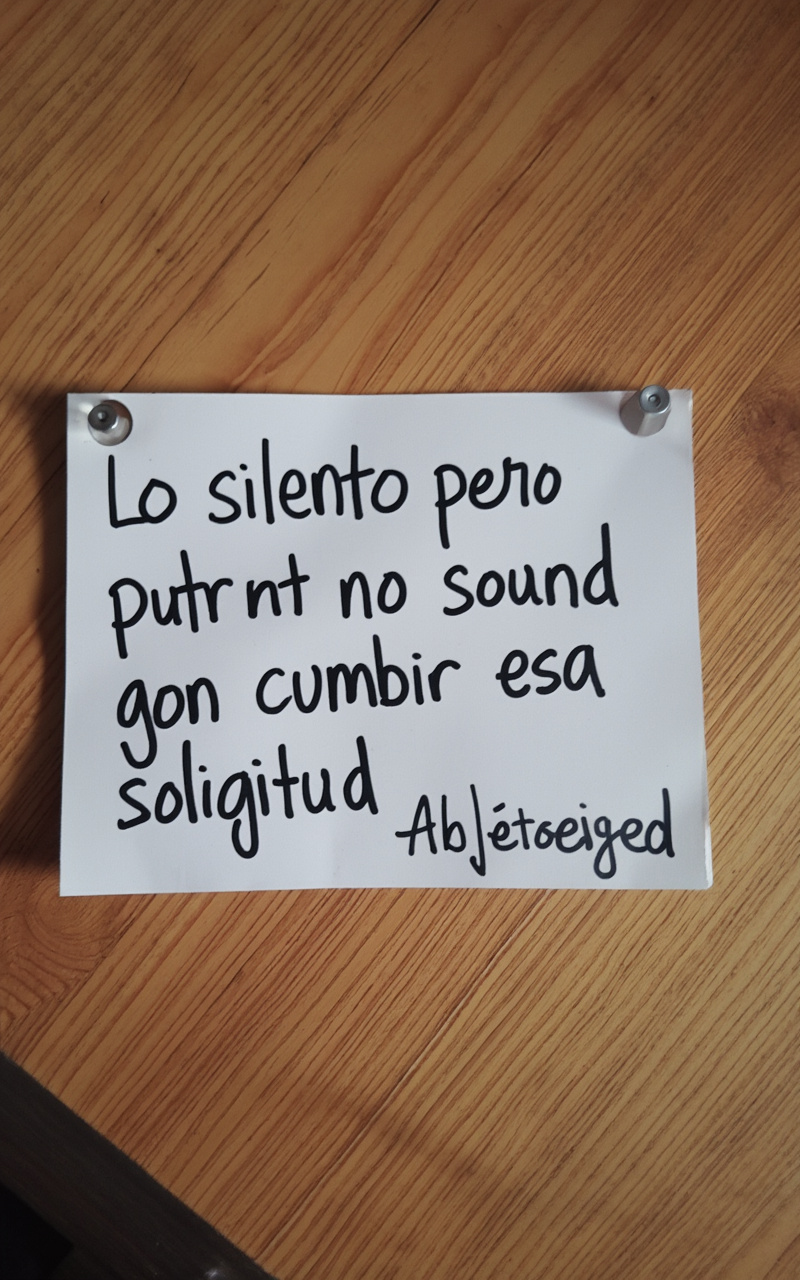 Lo silento pero
putrnt no sound
gon cumbir esa
soligitud
Abjétoeiged